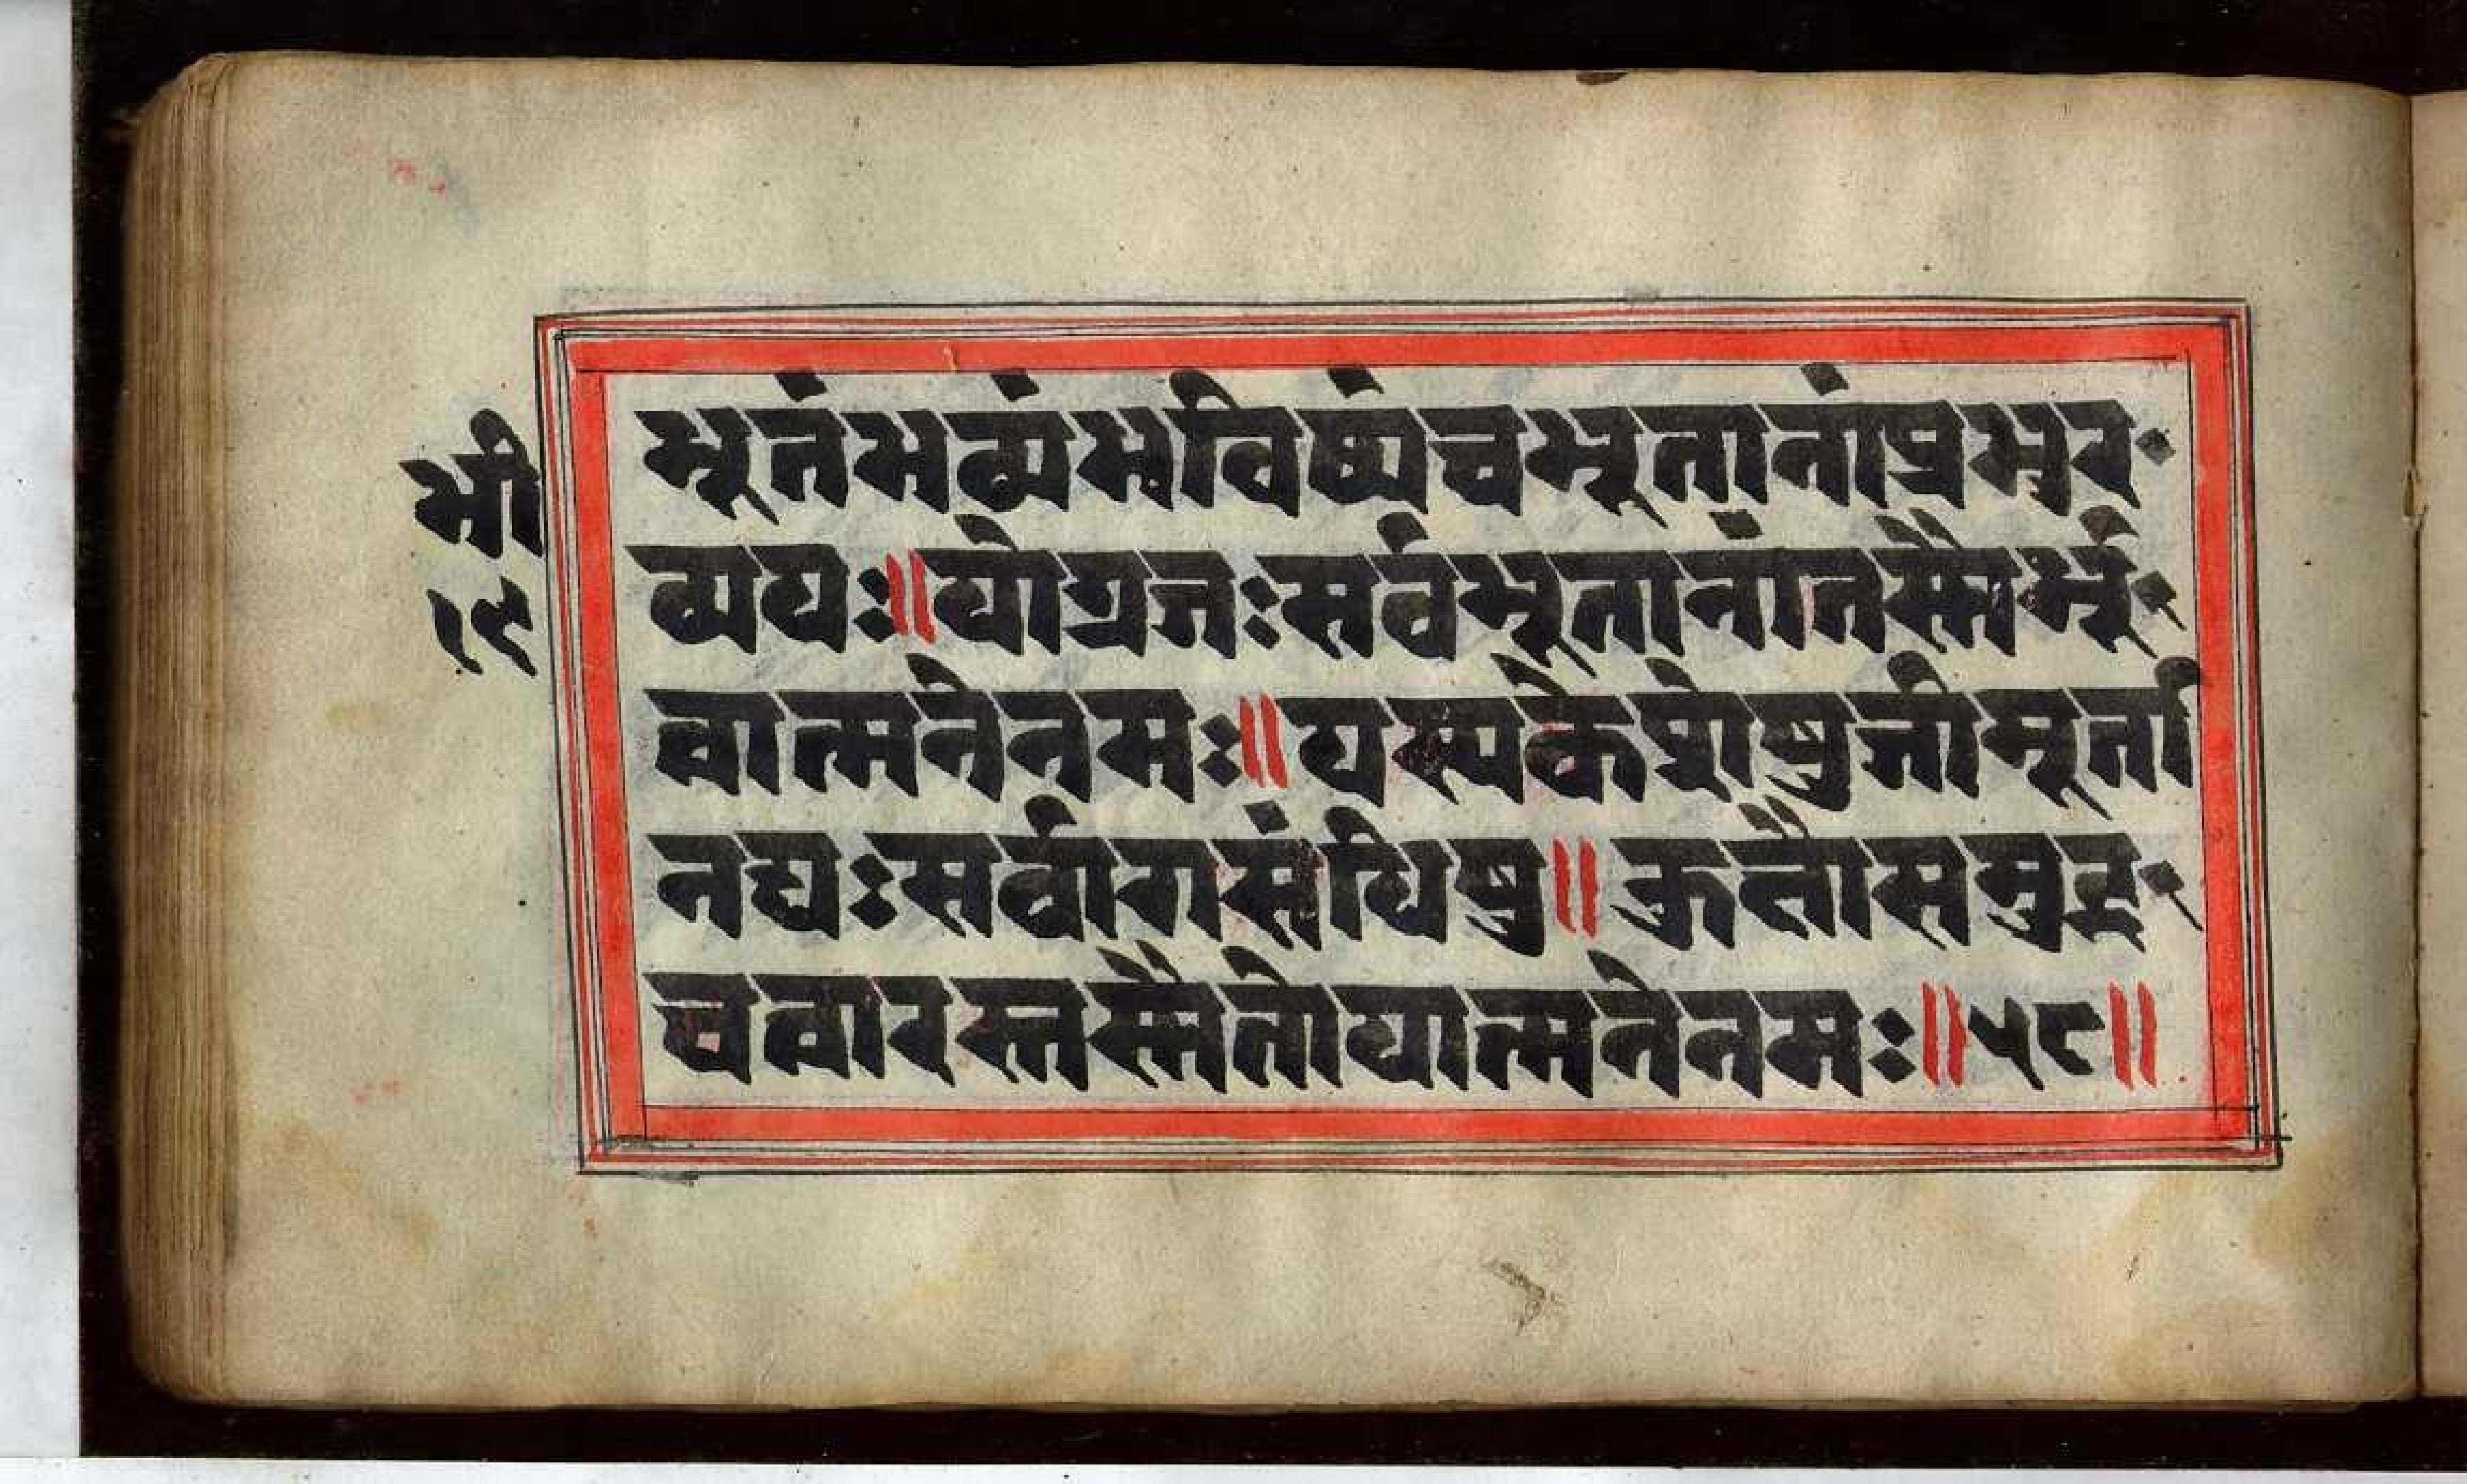 भी
१९
भूतंभव्यंभविष्यंचभूतानांप्रभुर
व्ययः॥योग्रजःसर्वभूतानांतस्मैभूर्
वात्मनेनमः॥यस्यकेशेषुजीमूता
नद्यः सर्वांगसंधिषु॥कुक्षौसमुद्रा
चत्वारस्तस्मैतोयात्मनेनमः॥५८॥